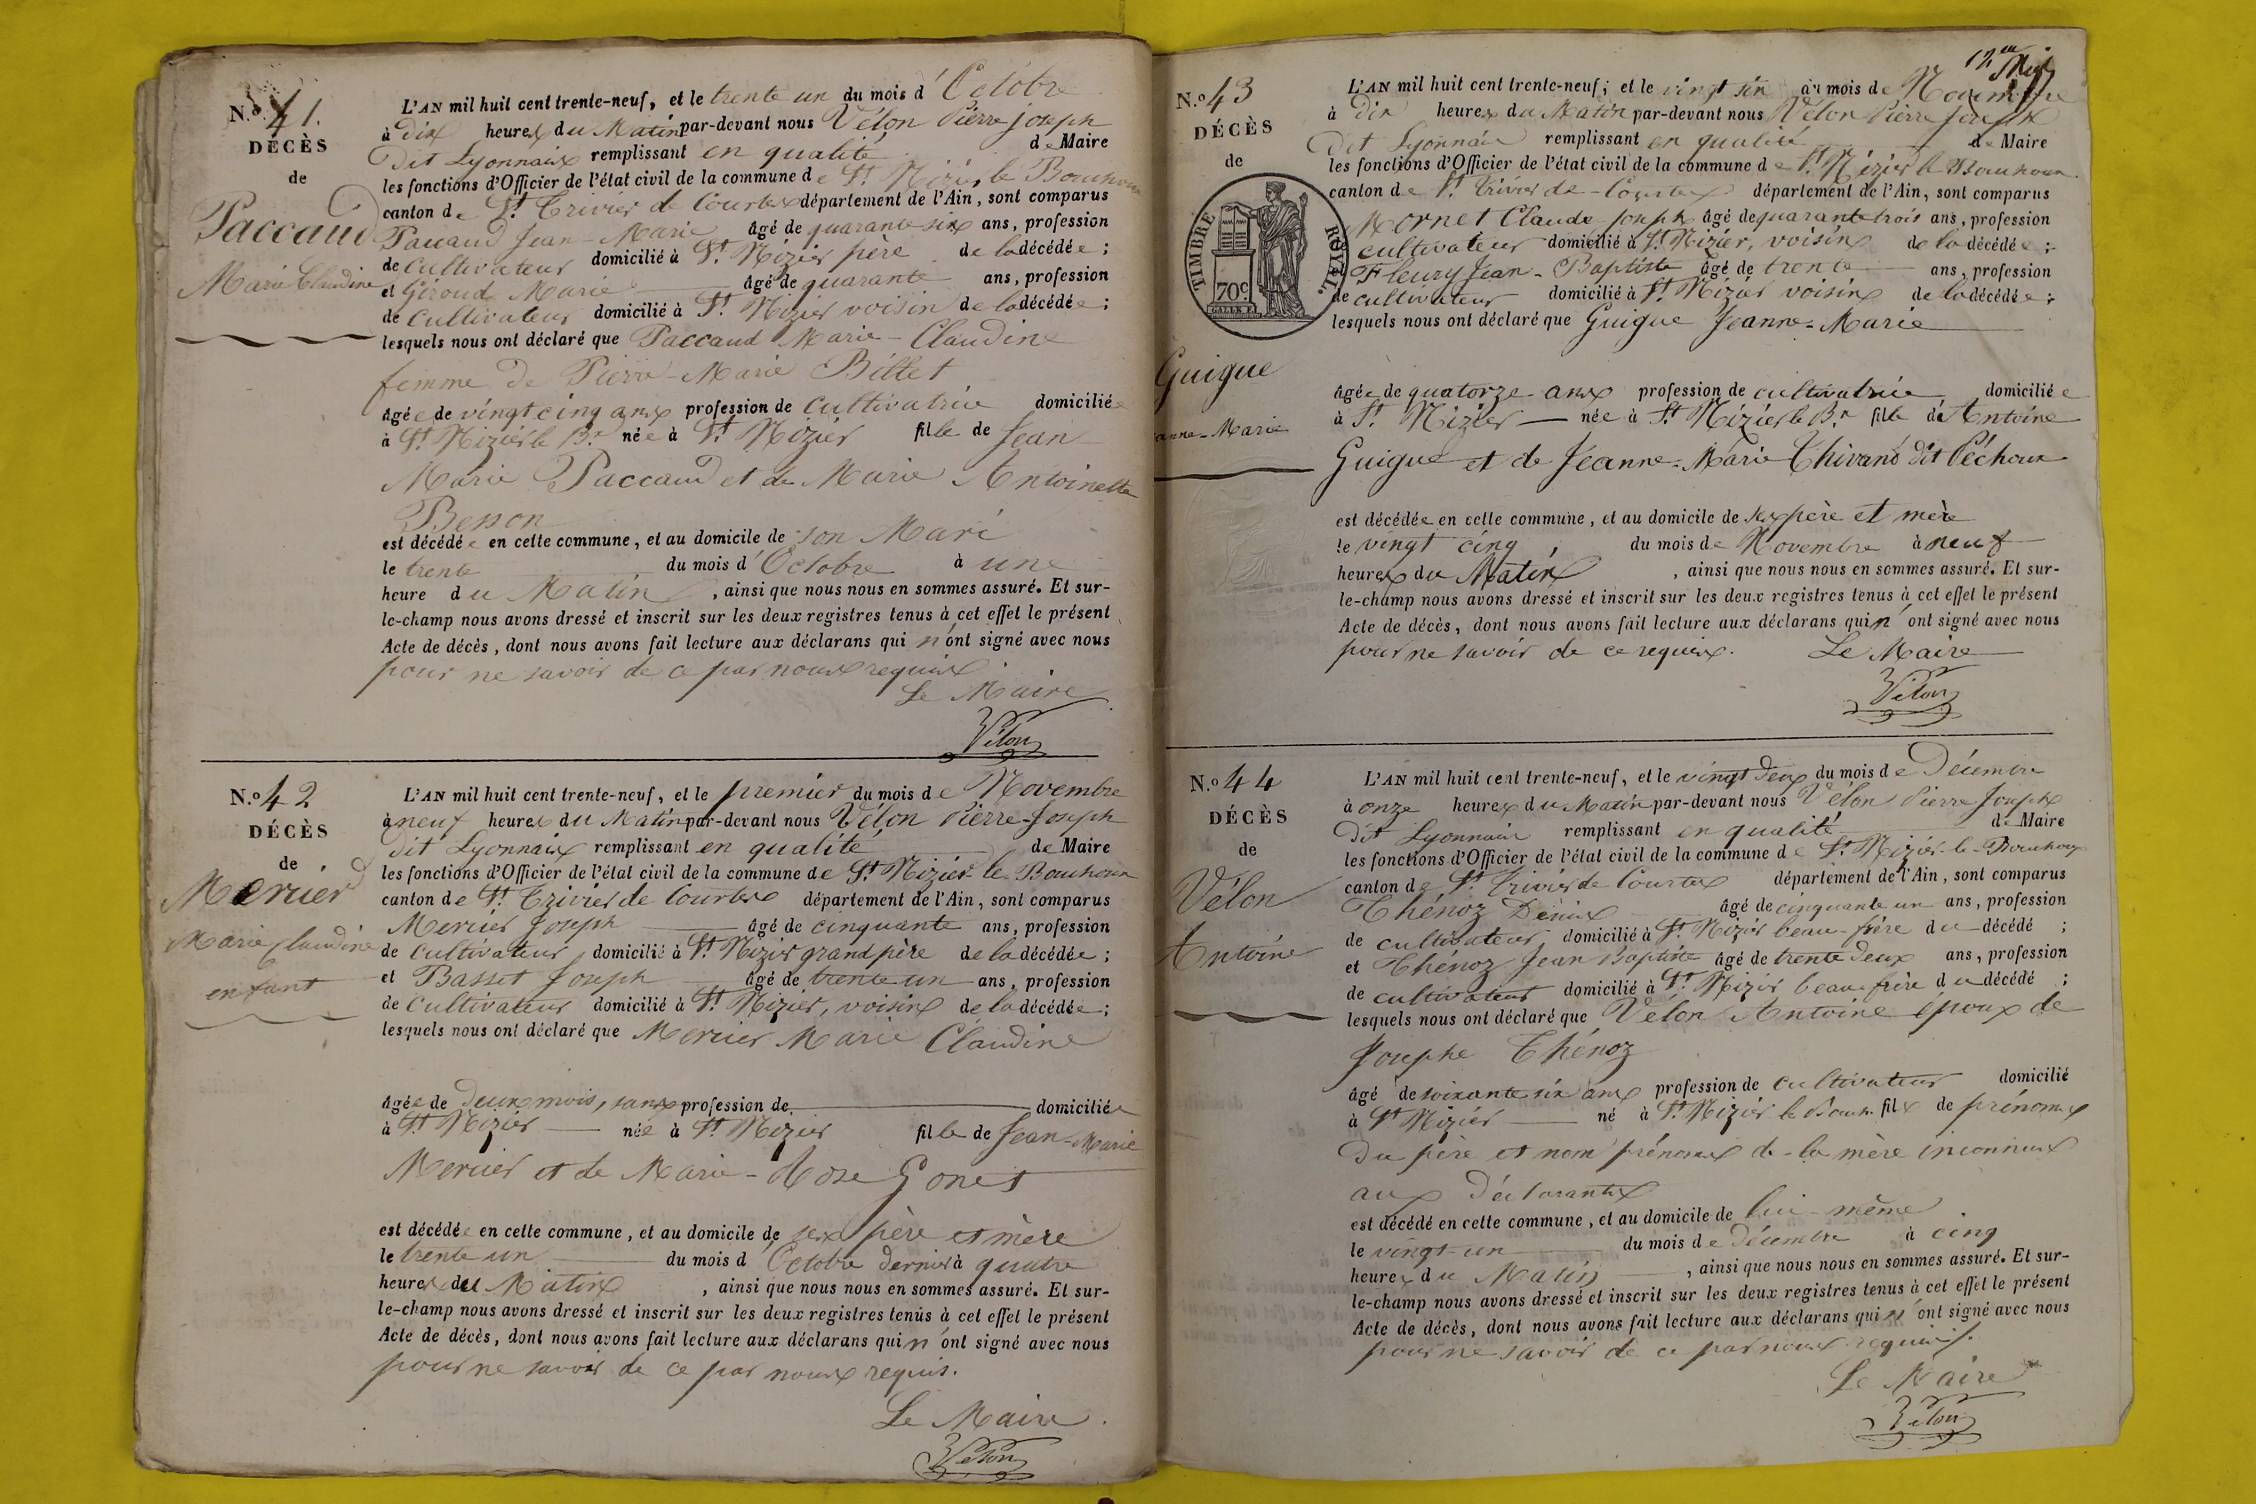 N.o 41.
DÉCÈS
de
Paccaud
Marie Claudine
L'AN mil huit cent trente-neuf, et le trente un du mois d'Octobre
à dix heures du Matin par-devant nous Vélon Pierre Joseph
dit Lyonnaix remplissant en qualité de Maire
les fonctions d'Officier de l'état civil de la commune de St. Nizier le Bouhoux
canton de St. Trivier de Courtex département de l'Ain, sont comparus
Paccaud Jean-Marie âgé de quarante six ans, profession
de cultivateur domicilié à St. Nizier père de la décédée;
et Giroud Marie âgé de quarante ans, profession
de cultivateur domicilié à St. Nizier voisin de la décédée;
lesquels nous ont déclaré que Paccaud Marie-Claudine
femme de Pierre-Marie Billet
âgée de vingt cinq anx profession de cultivatrice domiciliée
à St. Nizier le Br. née à St. Nizier fille de Jean
Marie Paccaud et de Marie Antoinette
Besson
est décédée en cette commune, et au domicile de son Mari
le trente du mois d'Octobre à une
heure du Matin, ainsi que nous nous en sommes assuré. Et sur-
le-champ nous avons dressé et inscrit sur les deux registres tenus à cet effet le présent
Acte de décès, dont nous avons fait lecture aux déclarans qui n'ont signé avec nous
pour ne savoir de ce par noux requix.
Le Maire
Vélon
N.o 42
DÉCÈS
de
Mercier
Marie Claudine
enfant
L'AN mil huit cent trente-neuf, et le premier du mois de Novembre
à neuf heures du Matin par-devant nous Vélon Pierre-Joseph
dit Lyonnaix remplissant en qualité de Maire
les fonctions d'Officier de l'état civil de la commune de St. Nizier le Bouhoux
canton de St. Trivier de Courtex département de l'Ain, sont comparus
Mercier Joseph âgé de cinquante ans, profession
de cultivateur domicilié à St. Nizier grand père de la décédée;
et Basset Joseph âgé de trente un ans, profession
de cultivateur domicilié à St. Nizier, voisinx de la décédée;
lesquels nous ont déclaré que Mercier Marie Claudine
âgée de deux mois, sanx profession de domiciliée
à St. Nizier née à St. Nizier fille de Jean-Marie
Mercier et de Marie-Rose Gonet
est décédée en cette commune, et au domicile de sex père et mère
le trente un du mois d'Octobre dernier à quatre
heures du Matin, ainsi que nous nous en sommes assuré. Et sur-
le-champ nous avons dressé et inscrit sur les deux registres tenus à cet effet le présent
Acte de décès, dont nous avons fait lecture aux déclarans qui n'ont signé avec nous
pour ne savoir de ce par noux requis.
Le Maire
Vélon
N.o 43
DÉCÈS
de
TIMBRE ROYAL.
70c
Guigue
anne-Marie
L'AN mil huit cent trente-neuf; et le vingt six du mois de Novembre
à dix heures du Matin par-devant nous Vélon Pierre Joseph
dit Lyonnaix remplissant en qualité de Maire
les fonctions d'Officier de l'état civil de la commune de St. Nizier le Bouhoux
canton de St. Trivier de-Courtex département de l'Ain, sont comparus
Mornet Claude-Joseph âgé de quarante trois ans, profession
cultivateur domicilié à St. Nizier, voisinx de la décédée;
Fleury Jean-Baptiste âgé de trente ans, profession
de cultivateur domicilié à St. Nizier voisinx de la décédée;
lesquels nous ont déclaré que Guigue Jeanne-Marie
âgée de quatorze anx profession de cultivatrice domiciliée
à St. Nizier née à St. Nizier le Br. fille de Antoine
Guigue et de Jeanne-Marie Thivand dit Péchoux
est décédée en cette commune, et au domicile de sex père et mère
le vingt cinq du mois de Novembre à neuf
heures du Matin, ainsi que nous nous en sommes assuré. Et sur-
le-champ nous avons dressé et inscrit sur les deux registres tenus à cet effet le présent
Acte de décès, dont nous avons fait lecture aux déclarans qui n'ont signé avec nous
pour ne savoir de ce requix. Le Maire
Vélon
N.o 44
DÉCÈS
de
Vélon
Antoine
L'AN mil huit cent trente-neuf, et le vingt deux du mois de Décembre
à onze heures du Matin par-devant nous Vélon Pierre Joseph
dit Lyonnaix remplissant en qualité de Maire
les fonctions d'Officier de l'état civil de la commune de St. Nizier-le-Bouhoux
canton de St. Trivier de Courtex département de l'Ain, sont comparus
Thénoz Denix âgé de cinquante un ans, profession
de cultivateur domicilié à St. Nizier beau-frère du décédé;
et Thénoz Jean Baptiste âgé de trente deux ans, profession
de cultivateur domicilié à St. Nizier beau-frère du décédé;
lesquels nous ont déclaré que Vélon Antoine époux de
Josephe Thénoz
âgé de soixante six anx profession de cultivateur domicilié
à St. Nizier né à St. Nizier le Bouh. filx de prénomx
du père et nom prénomx de la mère inconnux
aux déclarantx
est décédé en cette commune, et au domicile de lui-même
le vingt-un du mois de Décembre à cinq
heures du Matin, ainsi que nous nous en sommes assuré. Et sur-
le-champ nous avons dressé et inscrit sur les deux registres tenus à cet effet le présent
Acte de décès, dont nous avons fait lecture aux déclarans qui n'ont signé avec nous
pour ne savoir de ce par noux requis.
Le Maire
Vélon